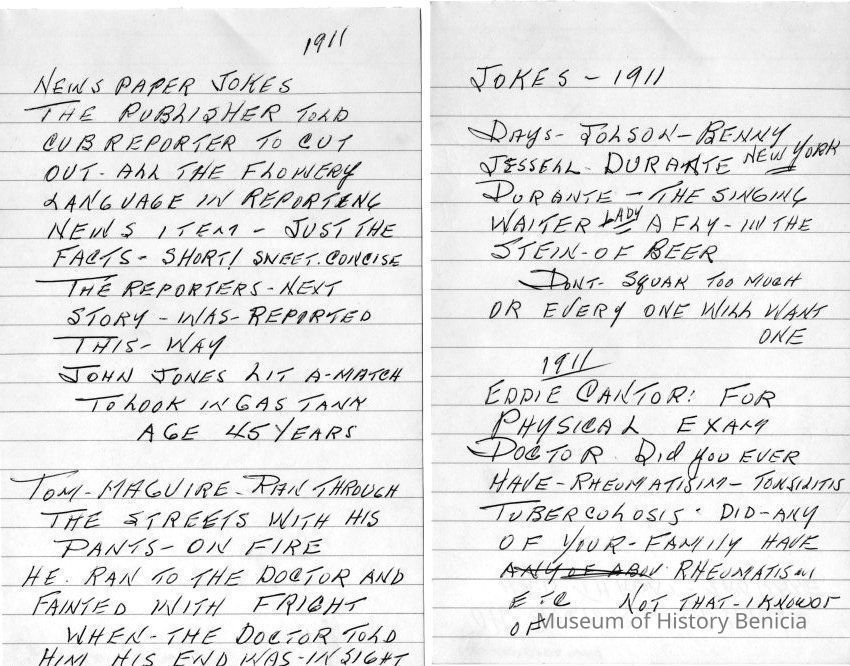 1911
NEWS PAPER JOKES
THE PUBLISHER TOLD
CUB REPORTER TO CUT
OUT - ALL THE FLOWERY
LANGUAGE IN REPORTENG
NEWS ITEM - JUST THE
FACTS - SHORT! SWEET. CONCISE
THE REPORTERS - NEXT
STORY - WAS - REPORTED
THIS - WAY
JOHN JONES LIT A - MATCH
TO LOOK IN GAS TANK
AGE 45 YEARS
TOM - MAGUIRE - RAN THROUGH
THE STREETS WITH HIS
PANTS - ON FIRE
HE. RAN TO THE DOCTOR AND
FAINTED WITH FRIGHT
WHEN - THE DOCTOR TOLD
HIM HIS END WAS - IN SIGHT
JOKES - 1911
DAYS - JOLSON - BENNY
JESSELL - DURANTE NEW YORK
DURANTE - THE SINGING
WAITER LADY A FLY - IN THE
STEIN - OF BEER
DONT - SQUAK TOO MUCH
OR EVERY ONE WILL WANT
ONE
1911
EDDIE CANTOR: FOR
PHYSICAL EXAM
DOCTOR Did you EVER
HAVE - RHEUMATISIM - TONSILITIS
TUBERCULOSIS - DID - ANY
OF YOUR - FAMILY HAVE
RHEUMATISM
ETC NOT THAT - I KNOW OF
OF
Museum of History Benicia